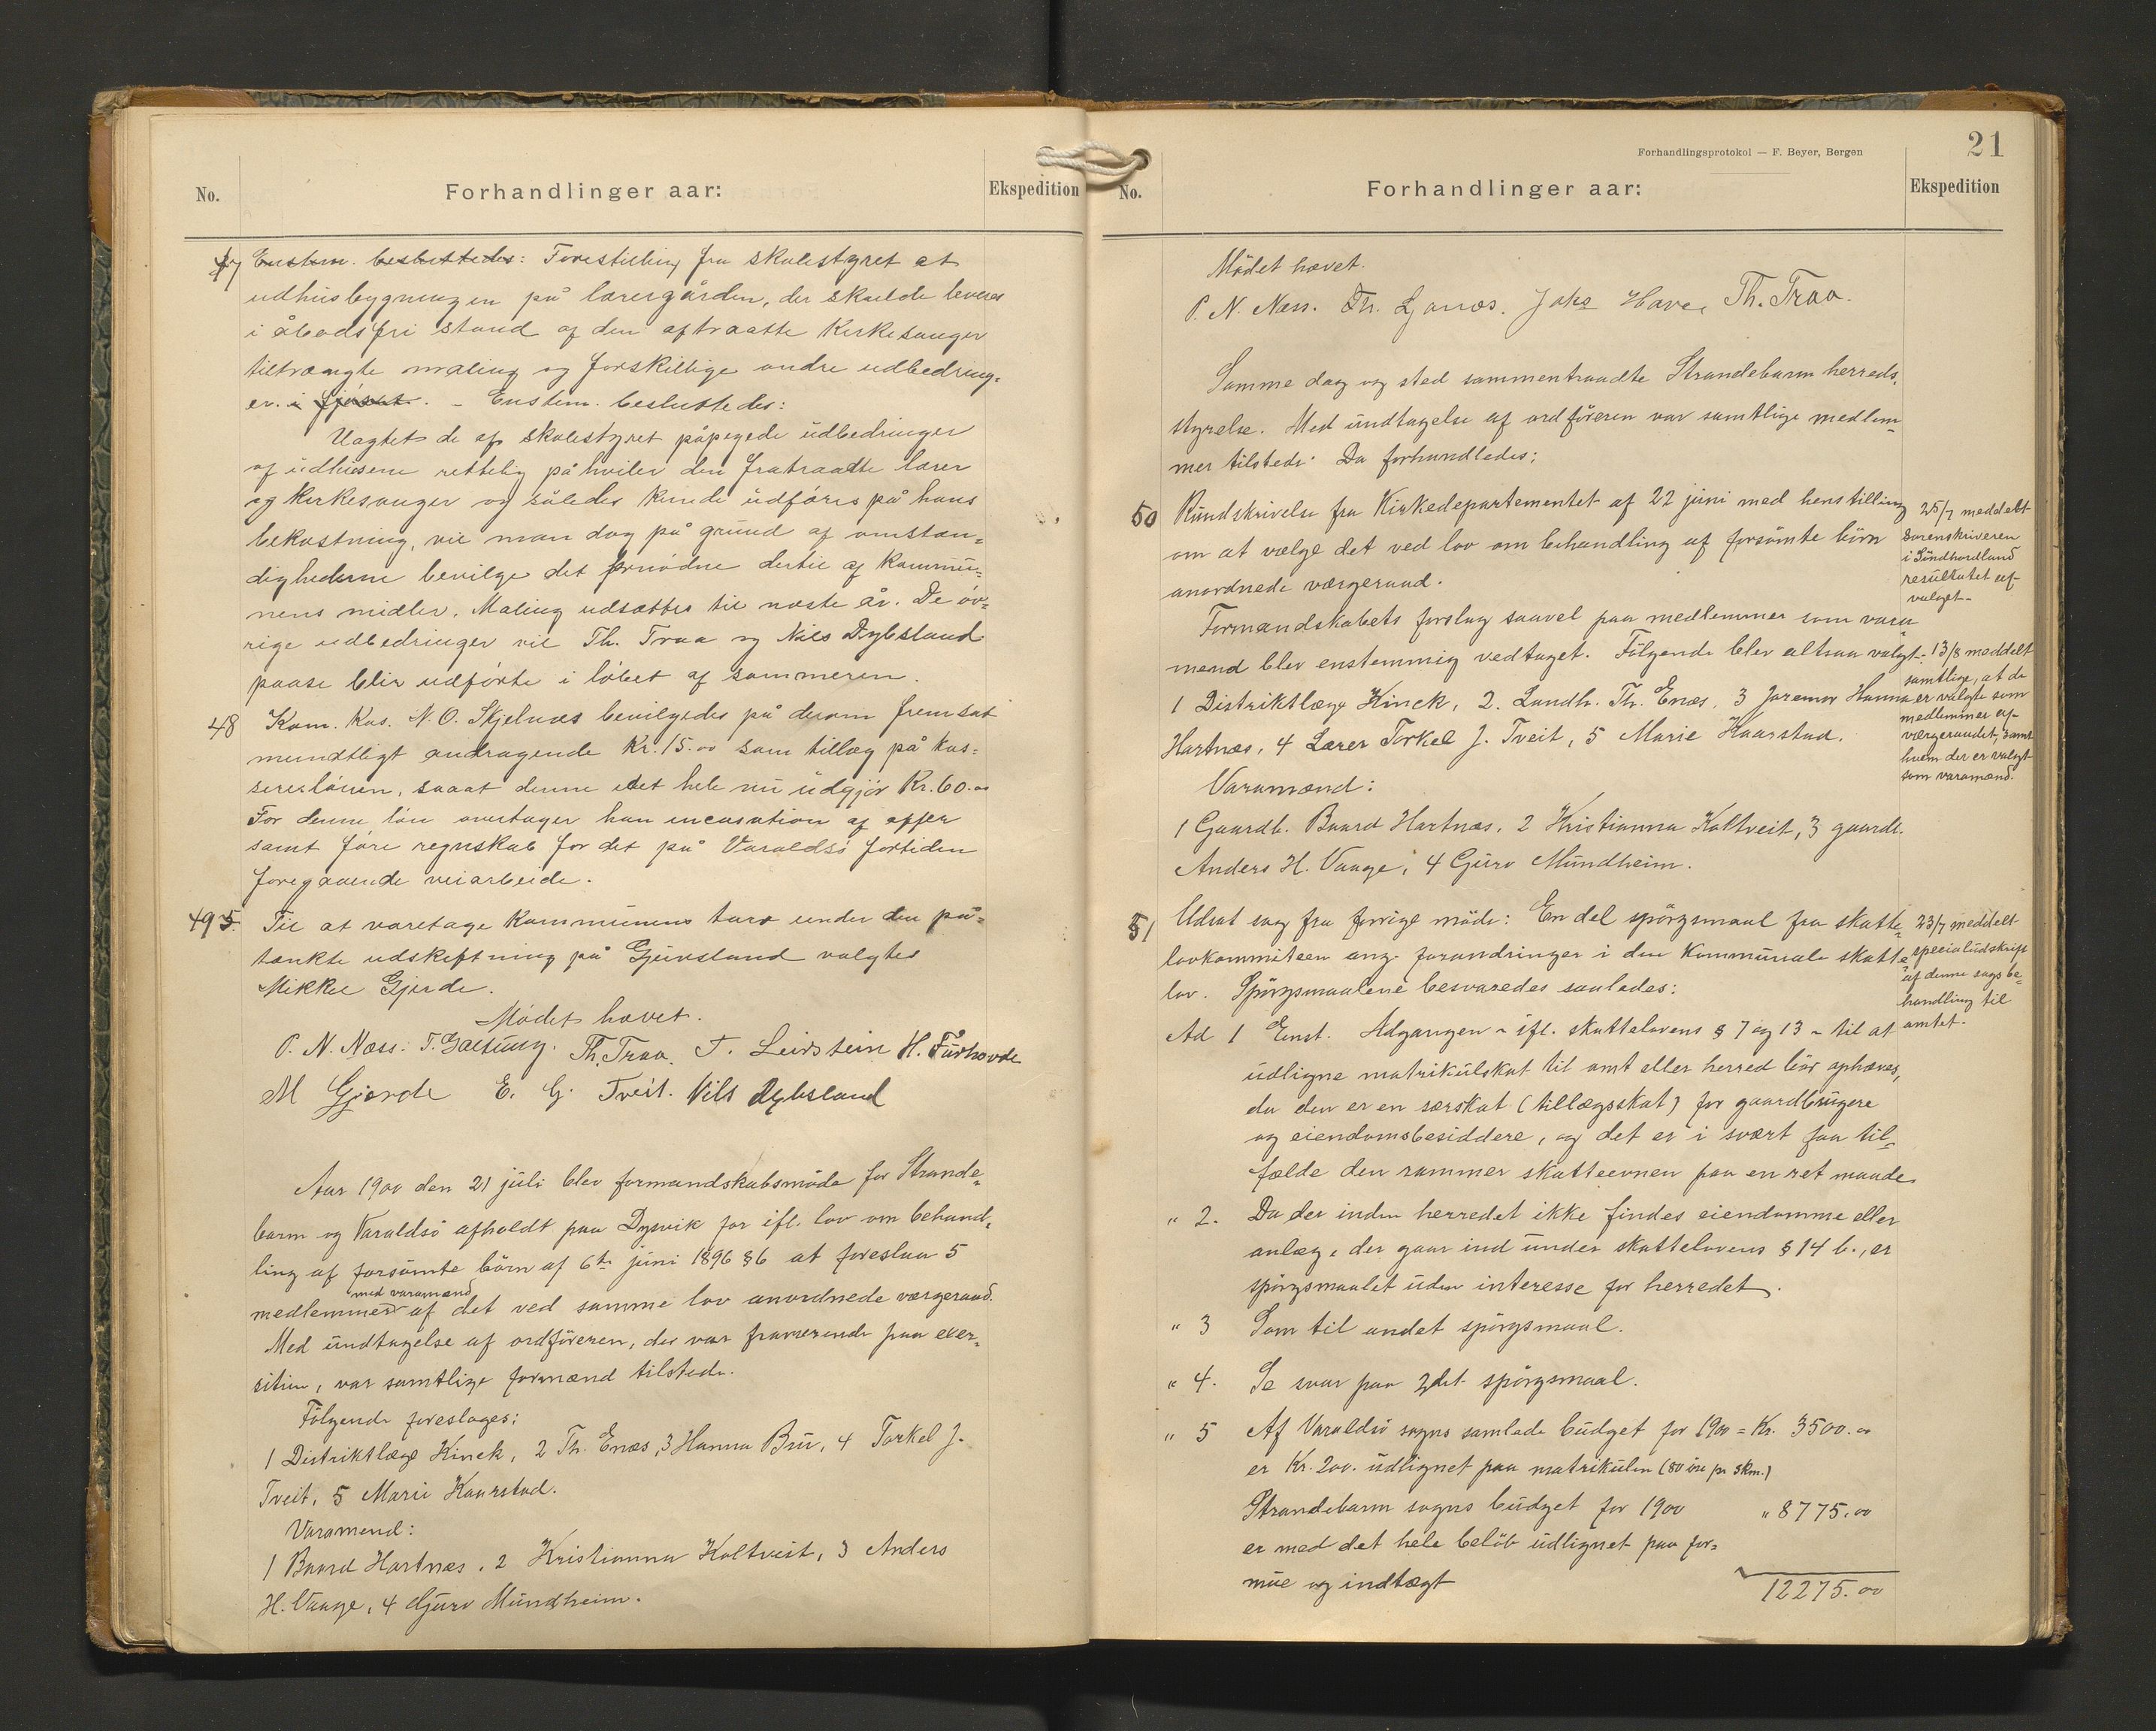 No.
Forhandlinger aar:
Ekspedition
47 Enstem. besluttedes: Forestilling fra skolestyret at
udhusbygningen på lærergården, der skulde leveres
i åbodsfri stand af den aftraatte kirkesanger
tiltrængte maling og forskillige andre udbedring-
er. i fjøset. - Enstem. besluttedes:
Uagtet de af skolestyret påpegede udbedringer
af udhusene rettelig påhviler den fratraadte lærer
og kirkesanger og således kunde udføres på hans
bekostning, vil man dog på grund af omstæn-
dighederne bevilge det fornødne dertil af kommu-
nens midler. Maling udsættes til næste år. De øv-
rige udbedringer vil Th. Traa og Nils Dybsland
paase blir udførte i løbet af sommeren.
48 Kom. Kas. N. O. Skjelnæs bevilgedes på derom fremsat
mundtligt andragende Kr. 15.00 som tillæg på kas-
sererlønen, saaat denne i det hele nu udgjør Kr. 60.00
For denne løn overtager han incasation af offer
samt føre regnskab for det på Varaldsø fortiden
foregaaende veiarbeide.
49 5. Til at varetage kommunens tarv under den på-
tænkte udskiftning på Gjeivsland valgtes
Mikkel Gjerde.
Mødet hævet.
P. N. Næss. T. Galtung. Th. Traa. T. Leirstein H. Furhovde
M Gjerde E. G. Tveit. Nils Dybsland
Aar 1900 den 21 juli blev formandskabsmøde for Strande-
barm og Varaldsø afholdt paa Dysvik for ifl. lov om behand-
ling af forsømte børn af 6te juni 1896 §6 at foreslaa 5
med varamænd
medlemmer af det ved samme lov anordnede værgeraad.
Med undtagelse af ordføreren, der var fraværende paa exer-
sitien, var samtlige formænd tilstede.
Følgende foreslages:
1 Distriktlæge Kinck, 2 Th. Enæs, 3 Hanna Bru, 4 Torkel J.
Tveit, 5 Marie Haarstad.
Varamend:
1 Baard Hartnæs, 2 Kristianna Holtveit, 3 Anders
H. Vaage, 4 Guro Mundheim.
Forhandlingsprotokol — F. Beyer, Bergen
21
No.
Forhandlinger aar:
Ekspedition
Mødet hævet.
P. N. Næss. Th. Ljonæs. Jaks Have, Th. Traa.
Samme dag og sted sammentraadte Strandebarm herreds-
styrelse. Med undtagelse af ordføreren var samtlige medlem-
mer tilstede. Da forhandledes:
50 Rundskrivelse fra Kirkedepartementet af 22 juni med henstilling
om at vælge det ved lov om behandling af forsømte børn
anordnede værgeraad.
25/7 meddelt
Sorenskriveren
i Søndhordland
resultatet af
valget.
Formandskabets forslag saavel paa medlemmer som vara-
mænd blev enstemmig vedtaget. Følgende blev altsaa valgt:
1 Distriktlæge Kinck, 2. Landh. Th. Enæs, 3 Jaremor Hanna
Hartnæs, 4 Lærer Torkel J. Tveit, 5 Marie Haarstad.
13/8 meddelt
samtlige, at de
er valgte som
medlemmer af
værgeraadet, samt
hvem der er valgt
som varamænd.
Varamænd:
1 Gaardb. Baard Hartnæs, 2 Kristianna Holtveit, 3 gaardb.
Anders H. Vaage, 4 Guro Mundheim.
51 Udsat sag fra forrige møde: En del spørgsmaal fra skatte-
lovkommiteen ang. forandringer i den kommunale skatte-
lov. Spørgsmaalene besvaredes saaledes:
23/7 meddelt
specialudskrift
af denne sags be-
handling til
amtet.
Ad 1 Enst. Adgangen - ifl. skattelovens § 7 og 13 - til at
udligne matrikulskat til amt eller herred bør ophæves,
da den er en særskat (tillægsskat) for gaardbrugere
og eiendomsbesiddere, og det er i svært faa til-
fælde den rammer skatteevnen paa en ret maade.
" 2. Da der inden herredet ikke findes eiendomme eller
anlæg, der gaar ind under skattelovens § 14 b., er
spørgsmaalet uden interesse for herredet.
" 3 Som til andet spørgsmaal.
" 4. Se svar paa 2det spørgsmaal.
" 5 Af Varaldsø sogns samlede budget for 1900 = Kr. 3500.00
er Kr. 200. udlignet paa matrikulen (80 øre pr skm.)
Strandebarm sogns budget for 1900 " 8775.00
er med det hele beløb udlignet paa for-
mue og indtægt
12275.00